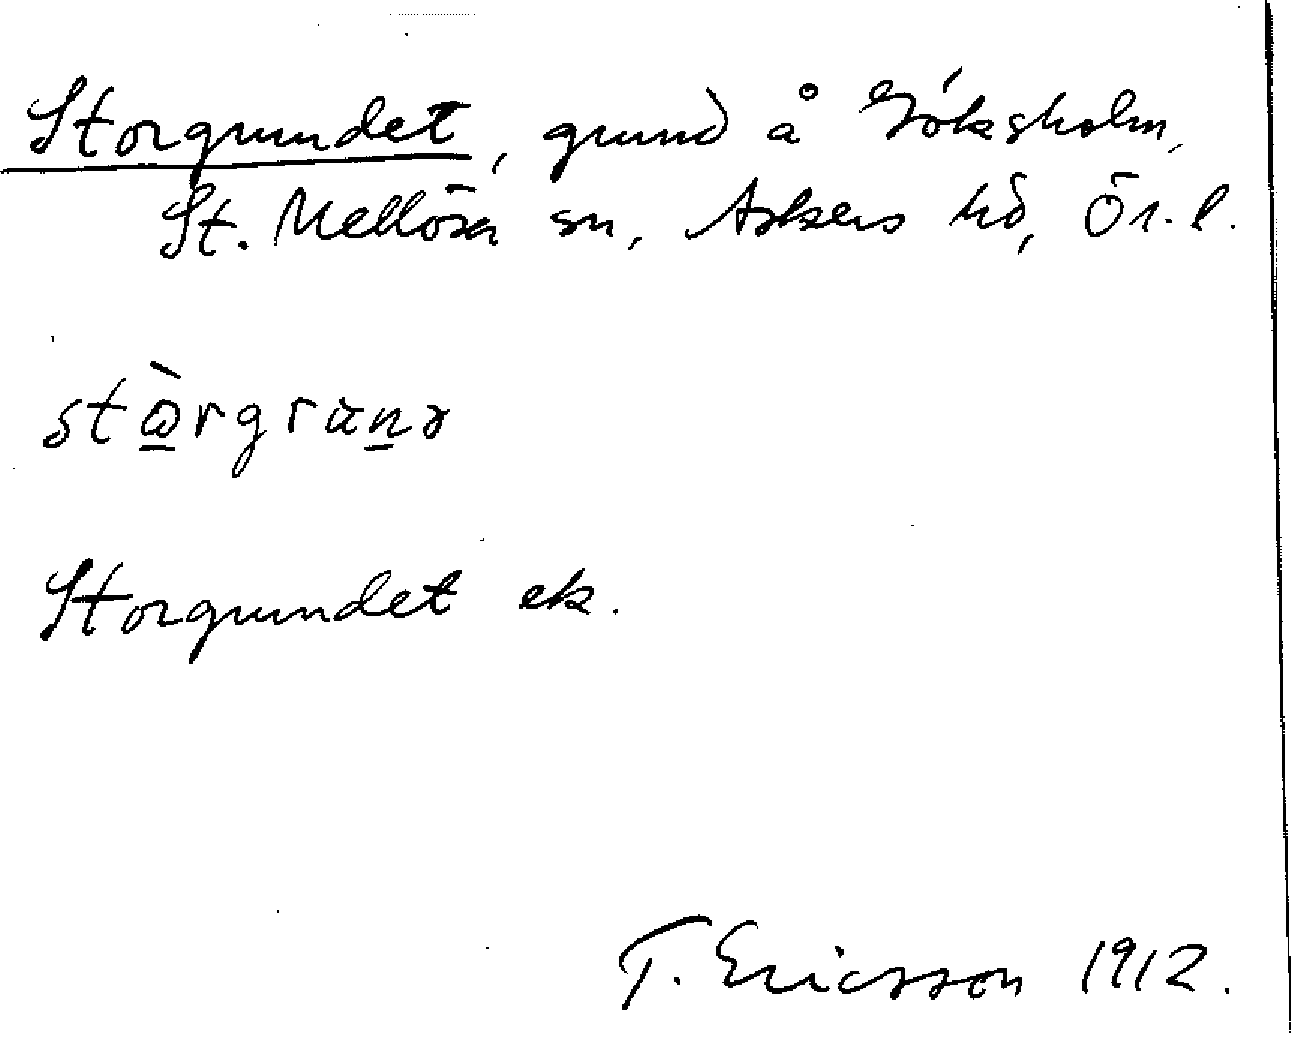 Storgrundet, grund å Göksholm,
St. Mellösa sn, Askers hd, Ör. l.
Storgrundet ek.
T. Ericsson 1912.